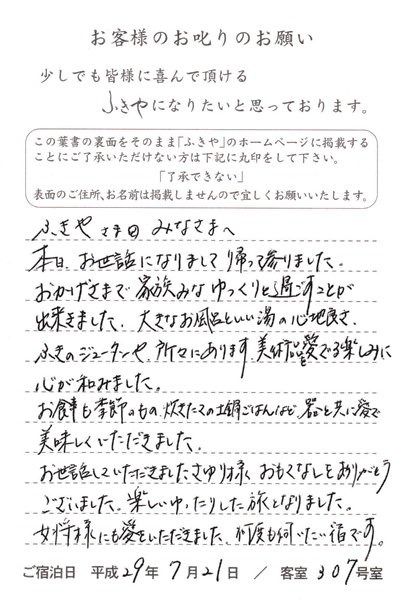 お客様のお叱りのお願い
少しでも皆様に喜んで頂ける
ふきやになりたいと思っております。
この葉書の裏面をそのまま「ふきや」のホームページに掲載する
ことにご了承いただけない方は下記に丸印をして下さい。
「了承できない」
表面のご住所、お名前は掲載しませんので宜しくお願いいたします。
ふきや みなさまへ
本日、お世話になりまして帰って参りました。
おかげさまで家族みなゆっくりと過ごすことが
出来ました。大きなお風呂といい湯の心地良さ、
ふきのジューターや、所々にあります、美術品を愛でる楽しみに
心が和みました。
お食事も季節のもの、炊きたての土鍋ごはんなど、器と共に愛で
美味しくいただきました。
お世話していただきましたさゆり様、おもてなしをありがとう
ございました。楽しいゆったりした旅となりました。
女将様にも愛をいただきました、何度も伺いたい宿です。
ご宿泊日 平成29年7月21日 / 客室 307号室